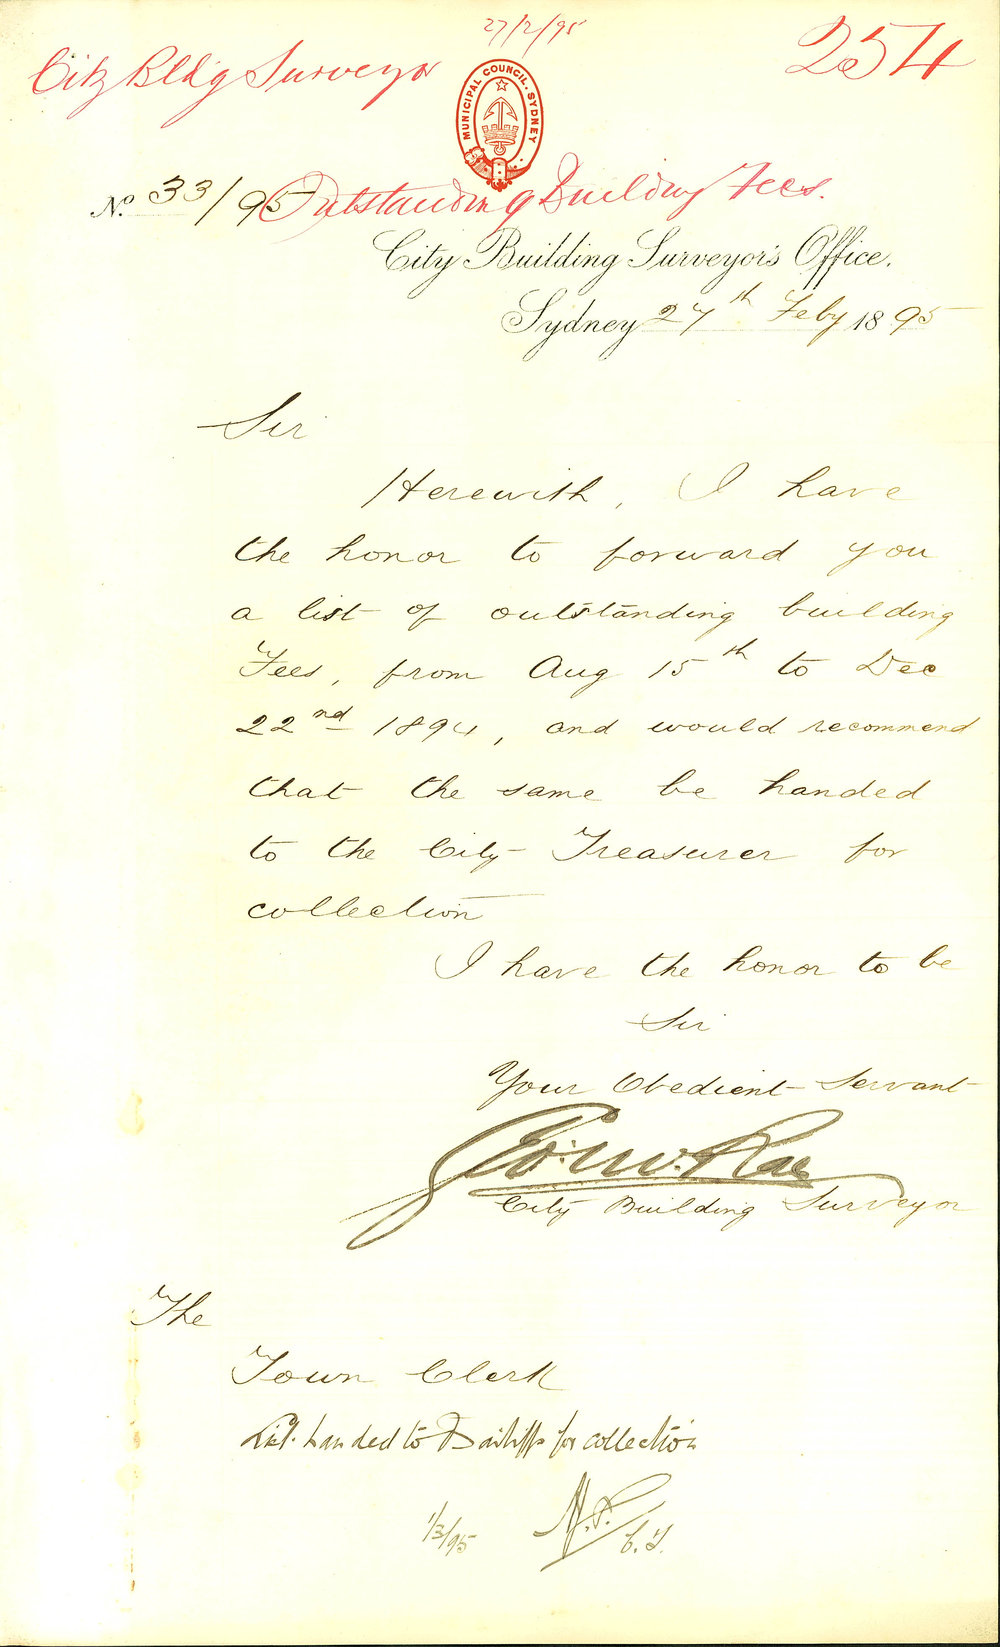 27/2/95
254
City Bldg Surveyor
MUNICIPAL COUNCIL. SYDNEY
No. 33/95 Outstanding Building Fees.
City Building Surveyor's Office.
Sydney 27th Feby 1895
Sir
Herewith, I have
the honor to forward you
a list of outstanding building
Fees, from Aug 15th to Dec
22nd 1894, and would recommend
that the same be handed
to the City Treasurer for
collection
I have the honor to be
Sir
Your Obedient Servant
Geo: McRae
City Building Surveyor
The
Town Clerk
List handed to Bailiffs for collection
1/3/95
C.T.